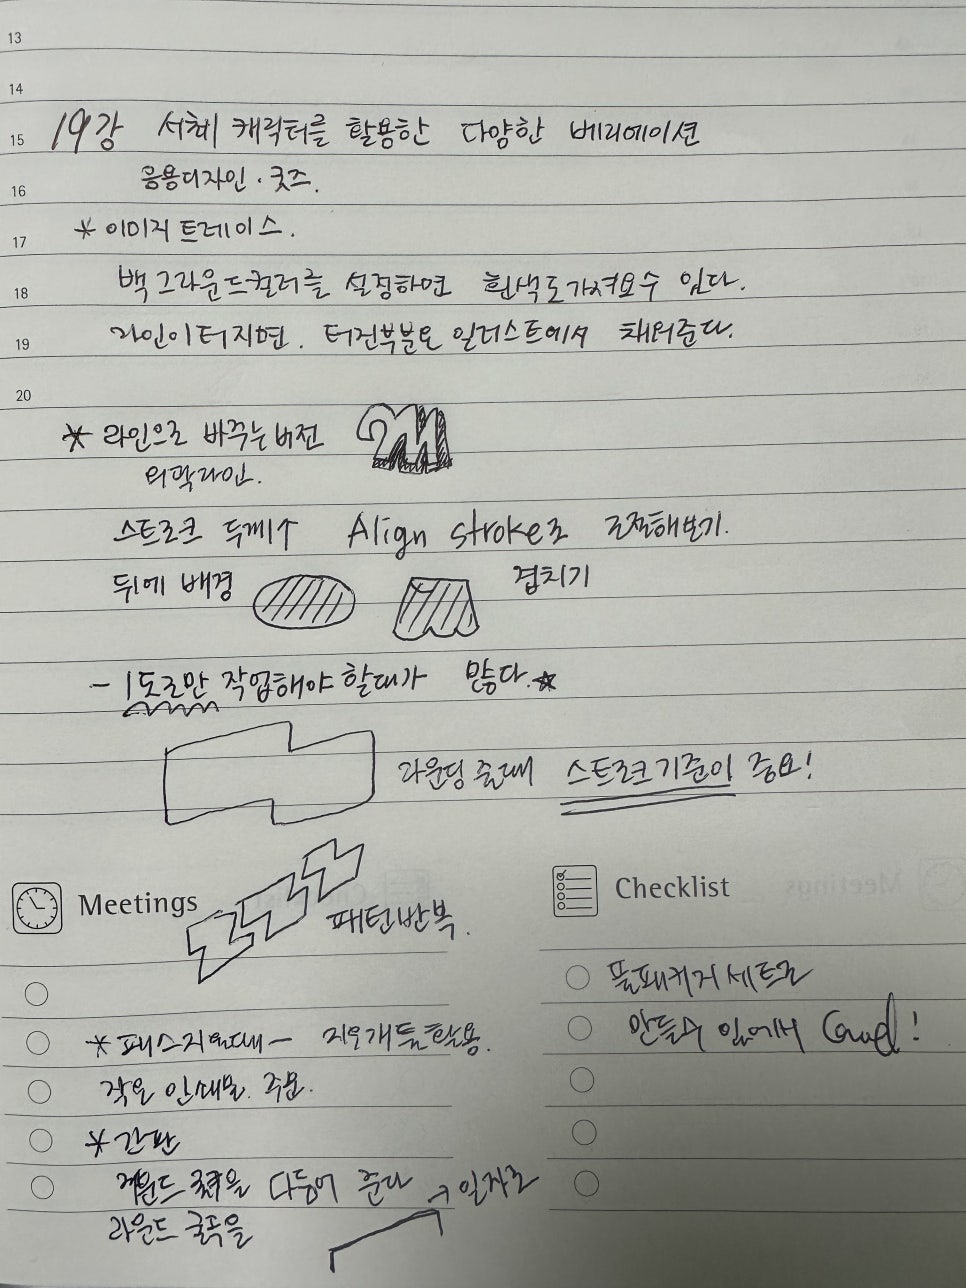 13
14
15 19강 서체 캐릭터를 활용한 다양한 베리에이션
16 응용디자인 · 굿즈.
17 * 이미지 트레이스.
18 백그라운드컬러를 설정하면 흰색도가져올수 있다.
19 라인이 터지면. 터진부분은 일러스트에서 채워준다.
20
* 라인으로 바꾸는 버전
외곽라인.
스트로크 두께↑ Align stroke로 조절해보기.
뒤에 배경 겹치기
- 1도로만 작업해야 할때가 많다.☆
라운딩 줄때 스트로크기준이 중요!
Meetings
패턴반복.
* 패스지울때 - 지우개툴활용.
작은 인쇄물. 주문.
* 간판
라운드 굴곡을 다듬어 준다 → 일자로
라운드 굴곡을
Checklist
풀패키지 세트로
만들수 있어서 Good!